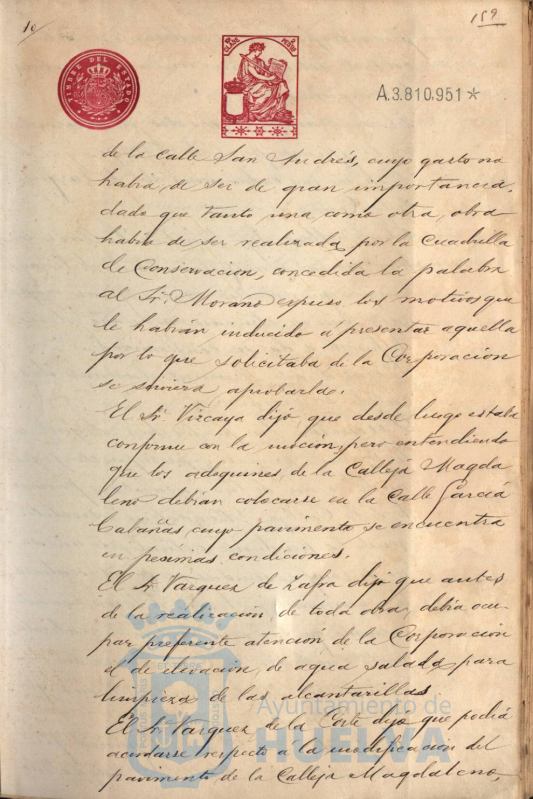 10
159
TIMBRE DEL ESTADO
CLASE PESOS
A.3.810.951*
de la calle San Andrés, cuyo gasto no
habia de ser de gran importancia,
dado que tanto una como otra, obra
habia de ser realizada por la Cuadrilla
de Conservacion, concedida la palabra
al Sr. Morano expuso los motivos que
le habian inducido á presentar aquella
por lo que solicitaba de la Corporacion
se sirviera aprobarla.
El Sr Vizcaya dijo que desde luego estaba
conforme con la mocion, pero entendiendo
que los adoquines de la Calleja Magda
leno debian colocarse en la calle Garcia
Cabañas, cuyo pavimento se encuentra
en pesimas condiciones.
El Sr Vazquez de Zafra dijo que antes
de la realizacion de toda obra, debia ocu-
par preferente atención de la Corporacion
el de elevacion de agua salada para
limpieza de las alcantarillas
El Sr Vazquez de la Corte dijo que podia
acordarse respecto a la modificacion del
pavimento de la Calleja Magdaleno,
Ayuntamiento de
HUELVA